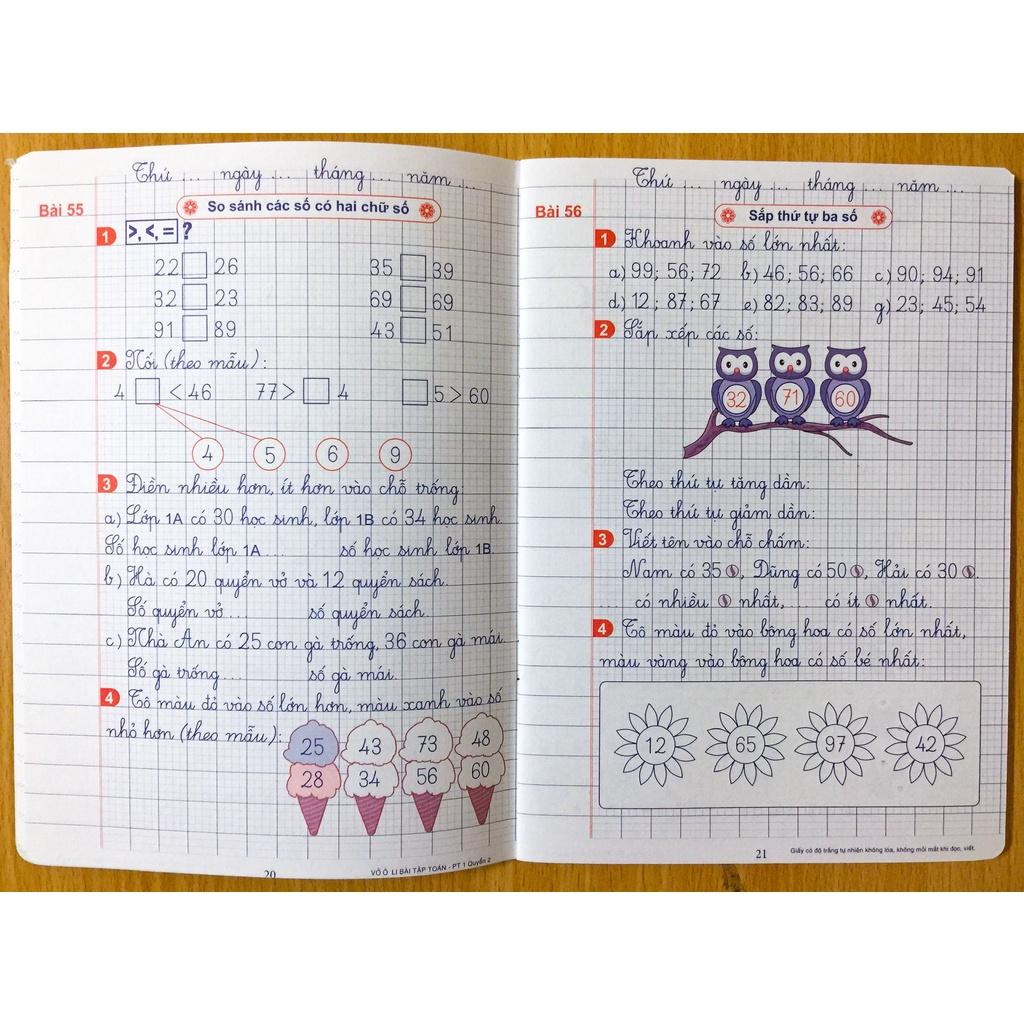 Thứ ... ngày ... tháng ... năm ...
Bài 55
So sánh các số có hai chữ số
1 >, <, = ?
22 □ 26 35 □ 39
32 □ 23 69 □ 69
91 □ 89 43 □ 51
2 Nối (theo mẫu):
4 □ < 46 77 > □ 4 □ 5 > 60
4 5 6 9
3 Điền nhiều hơn, ít hơn vào chỗ trống:
a) Lớp 1A có 30 học sinh, lớp 1B có 34 học sinh.
Số học sinh lớp 1A ... số học sinh lớp 1B.
b) Hà có 20 quyển vở và 12 quyển sách.
Số quyển vở ... số quyển sách.
c) Nhà An có 25 con gà trống, 36 con gà mái.
Số gà trống ... số gà mái.
4 Tô màu đỏ vào số lớn hơn, màu xanh vào số
nhỏ hơn (theo mẫu):
25 43 73 48
28 34 56 60
20
VỞ Ô LI BÀI TẬP TOÁN - PT 1 Quyển 2
Thứ ... ngày ... tháng ... năm ...
Bài 56
Sắp thứ tự ba số
1 Khoanh vào số lớn nhất:
a) 99; 56; 72 b) 46; 56; 66 c) 90; 94; 91
d) 12; 87; 67 e) 82; 83; 89 g) 23; 45; 54
2 Sắp xếp các số:
32 71 60
Theo thứ tự tăng dần:
Theo thứ tự giảm dần:
3 Viết tên vào chỗ chấm:
Nam có 35 , Dũng có 50 , Hải có 30 .
... có nhiều nhất, ... có ít nhất.
4 Tô màu đỏ vào bông hoa có số lớn nhất,
màu vàng vào bông hoa có số bé nhất:
12 65 97 42
21
Giấy có độ trắng tự nhiên không lóa, không mỏi mắt khi đọc, viết.